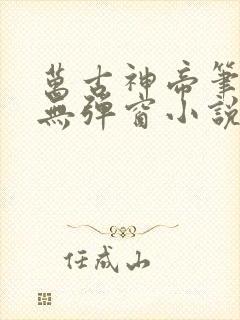 萬古神帝筆
無彈窗小說
任成山